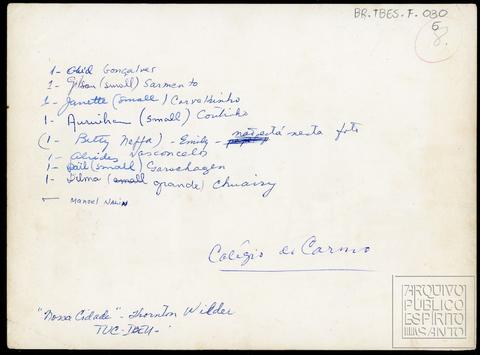 BR.TBES.F.030
6
8.
1- Glid Gonçalves
1- Gilson (small) Sarmento
1- Janette (small) Carvalhinho
1- (small) Coutinho
(1- Betty Neffa) - Emily - não está nesta foto
1- Alcides Vasconcelos
1- (small) Garschagen
1- Dilma (small grande) Chuairy
— Manoel Nalin
Colégio do Carmo
"Nossa Cidade" - Thornton Wilder
TUC-IBEU-
ARQUIVO
PÚBLICO
ESPÍRITO
SANTO